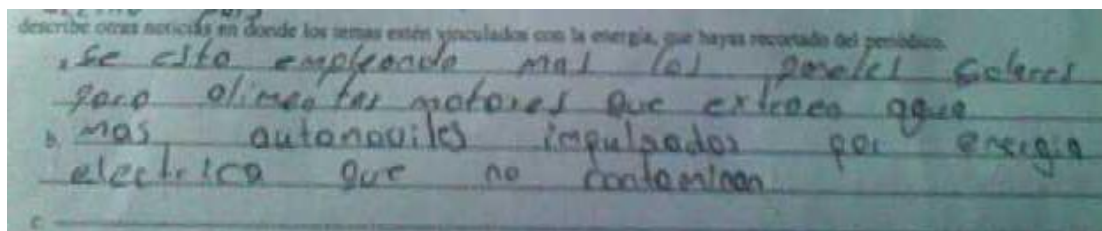 describe otras noticias en donde los temas estén vinculados con la energía, que hayas recortado del periódico.
se esta empleando mas los paneles solares
para alimentar motores que extraen agua
b. mas automoviles impulsados por energia
electrica que no contaminan
c.